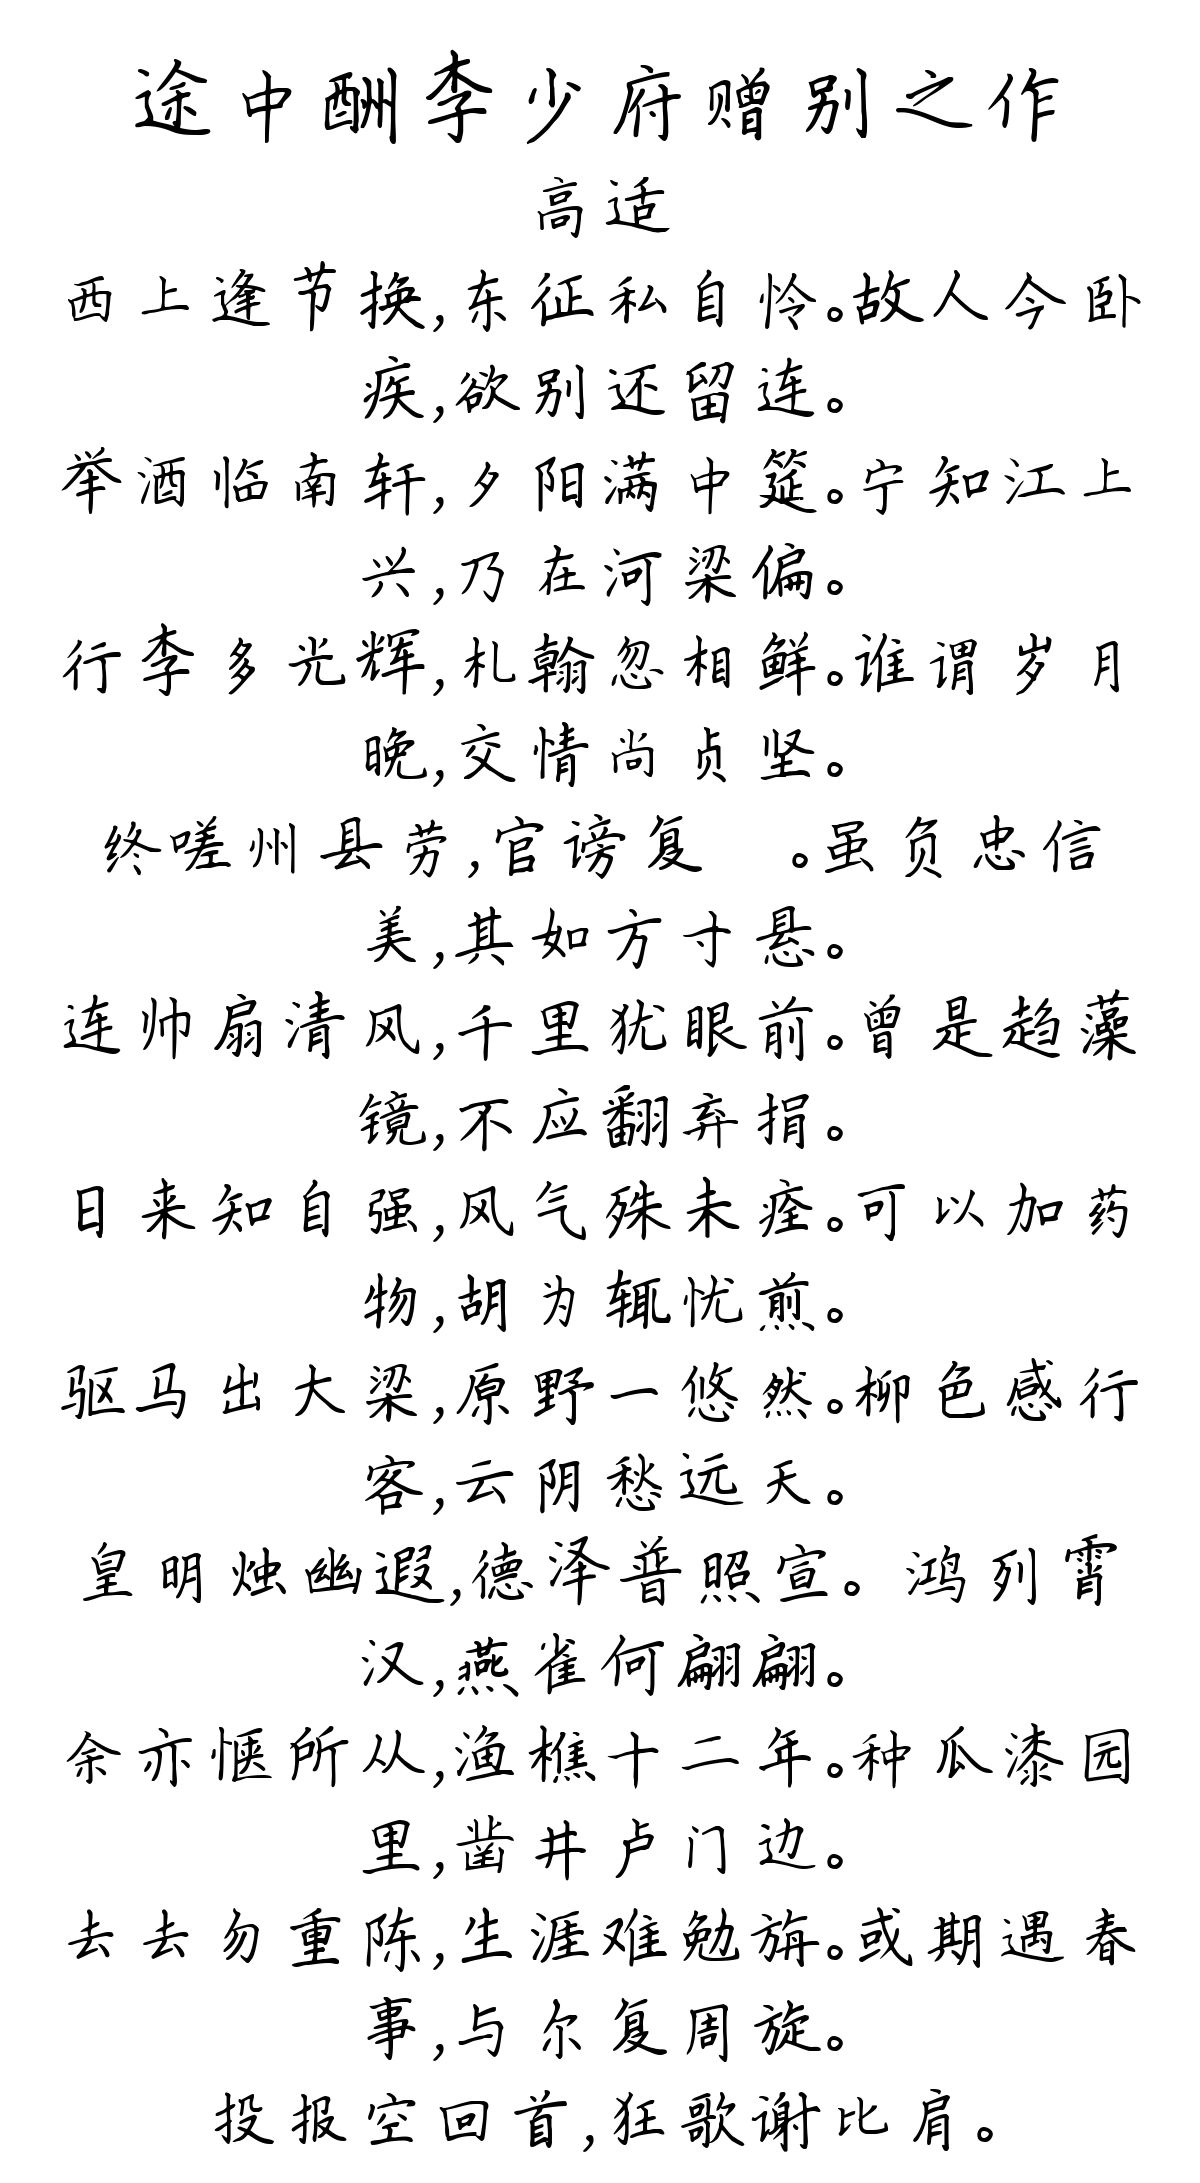 途中酬李少府赠别之作
高适
西上逢节换,东征私自怜。故人今卧
疾,欲别还留连。
举酒临南轩,夕阳满中筵。宁知江上
兴,乃在河梁偏。
行李多光辉,札翰忽相鲜。谁谓岁月
晚,交情尚贞坚。
终嗟州县劳,官谤复 。虽负忠信
美,其如方寸悬。
连帅扇清风,千里犹眼前。曾是趋藻
镜,不应翻弃捐。
日来知自强,风气殊未痊。可以加药
物,胡为辄忧煎。
驱马出大梁,原野一悠然。柳色感行
客,云阴愁远天。
皇明烛幽遐,德泽普照宣。 鸿列霄
汉,燕雀何翩翩。
余亦惬所从,渔樵十二年。种瓜漆园
里,凿井卢门边。
去去勿重陈,生涯难勉旃。或期遇春
事,与尔复周旋。
投报空回首,狂歌谢比肩。